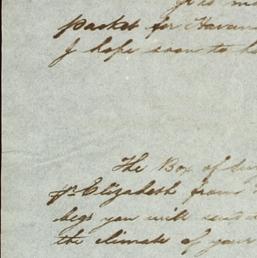 packet for Havana
I hope soon to he
The Box of
pr Elizabeth from
begs you will
the climate of your